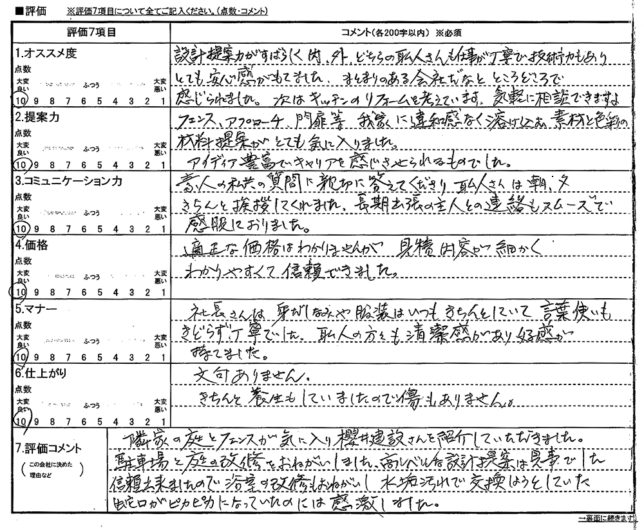 ■評価 ※評価7項目について全てご記入ください。(点数・コメント)
評価7項目 コメント(各200字以内) ※必須
1.オススメ度
点数
大変良い ふつう 大変悪い
10 9 8 7 6 5 4 3 2 1
設計提案力がすばらしく内、外、どちらの職人さんも仕事が丁寧で技術力もあり
とても安心感がもてました。まとまりのある会社だなと、ところどころで
感じられました。次はキッチンのリフォームを考えています。気軽に相談できますよ
2.提案力
点数
大変良い ふつう 大変悪い
10 9 8 7 6 5 4 3 2 1
フェンス、アプローチ、門扉等、我家に違和感なく溶け込む、素材と色彩の
材料提案がとても気に入りました。
アイディア豊富でキャリアを感じさせられるものでした。
3.コミュニケーション力
点数
大変良い ふつう 大変悪い
10 9 8 7 6 5 4 3 2 1
素人の私共の質問に親切に答えてくださり、職人さんは朝、夕
きちんと挨拶してくれました。長期出張の主人との連絡もスムーズで
感服しておりました。
4.価格
点数
大変良い ふつう 大変悪い
10 9 8 7 6 5 4 3 2 1
適正な価格はわかりませんが、見積内容が細かく
わかりやすくて信頼できました。
5.マナー
点数
大変良い ふつう 大変悪い
10 9 8 7 6 5 4 3 2 1
社長さんは、身だしなみや服装はいつもきちんとしていて言葉使いも
きどらず丁寧でした。職人の方々も清潔感があり好感が
持てました。
6.仕上がり
点数
大変良い ふつう 大変悪い
10 9 8 7 6 5 4 3 2 1
文句ありません。
きちんと養生もしていましたので傷もありません。
7.評価コメント
(この会社に決めた理由など)
隣家の庭とフェンスが気に入り櫻井建設さんを紹介していただきました。
駐車場と庭の改修をおねがいしました。高レベルな設計提案は見事でした
信頼出来ましたので浴室の改修もおねがいし 水垢汚れで交換しようとしていた
蛇口がピカピカになっていたのには感激しました。
→裏面に続きます